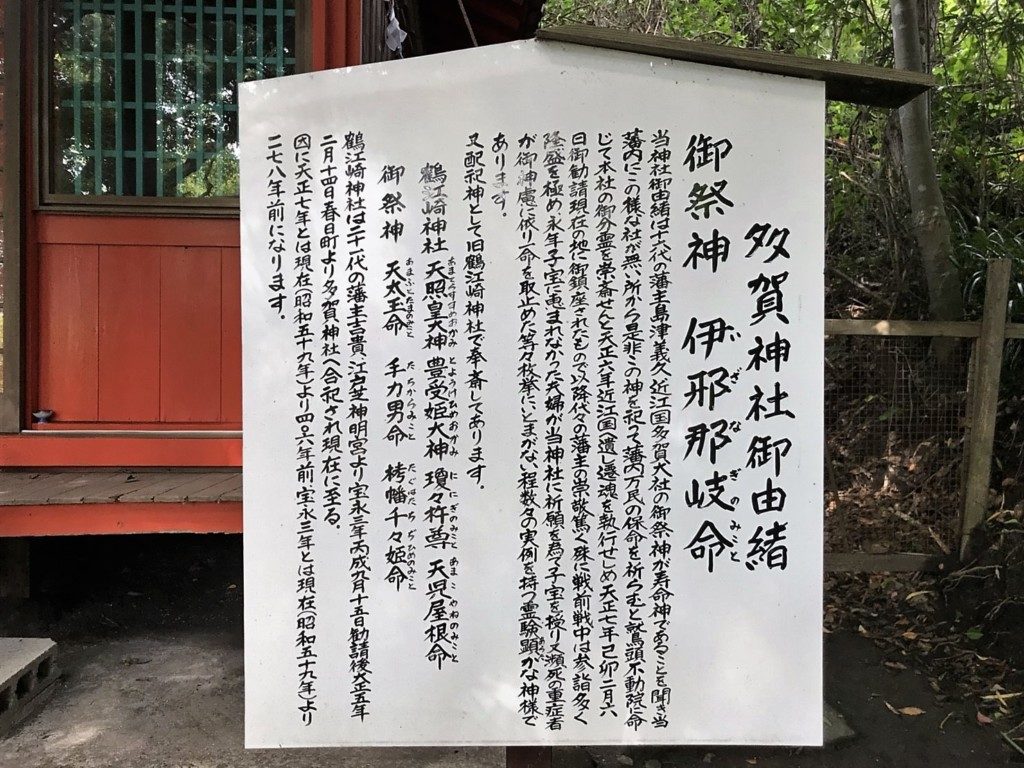 多賀神社御由緒
御祭神 伊邪那岐命
いざなぎのみこと
当神社御由緒は十六代の藩主島津義久、近江国多賀大社の御祭神が寿命神であることを聞き当
藩内にこの様な社が無い所から是非この神を祀って藩内万民の保命を祈らむと
じて本社の御分霊を奉斎せんと天正六年近江国へ遣し遷魂を執行せしめ天正七年己卯二月六
日御勧請現在の地に御鎮座されたもので以降代々の藩主の崇敬篤く殊に戦前戦中は参詣多く
隆盛を極め永年子宝に恵まれなかった夫婦が当神社に祈願を為て子宝を授り又瀕死の重症者
が御神慮に依り一命を取止めた等々枚挙にいとまがない程数々の実例を持つ霊験顕かな神様で
あります。
又配祀神として旧鶴江崎神社で奉斎してあります。
鶴江崎神社 天照皇大神 豊受姫大神 瓊々杵尊 天児屋根命
あまてらすすめのおかみ とようけひめおおかみ ににぎのみこと あまこやねのみこと
御祭神 天太玉命 手力男命 栲幡千々姫命
あまふとたまのみこと たちからみこと たくはたちぢひめのみこと
鶴江崎神社は二十一代の藩主吉貴、江戸芝神明宮より宝永三年丙戌九月十五日勧請後大正五年
二月十四日春日町より多賀神社へ合祀され現在に至る。
因に天正七年とは現在(昭和五十九年)より四〇六年前、宝永三年とは現在(昭和五十九年)より
二七八年前になります。